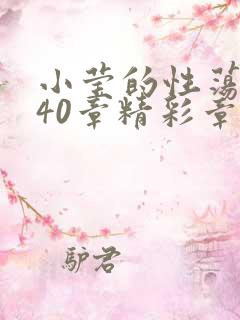 小莹的性荡
40章精彩章
驴君